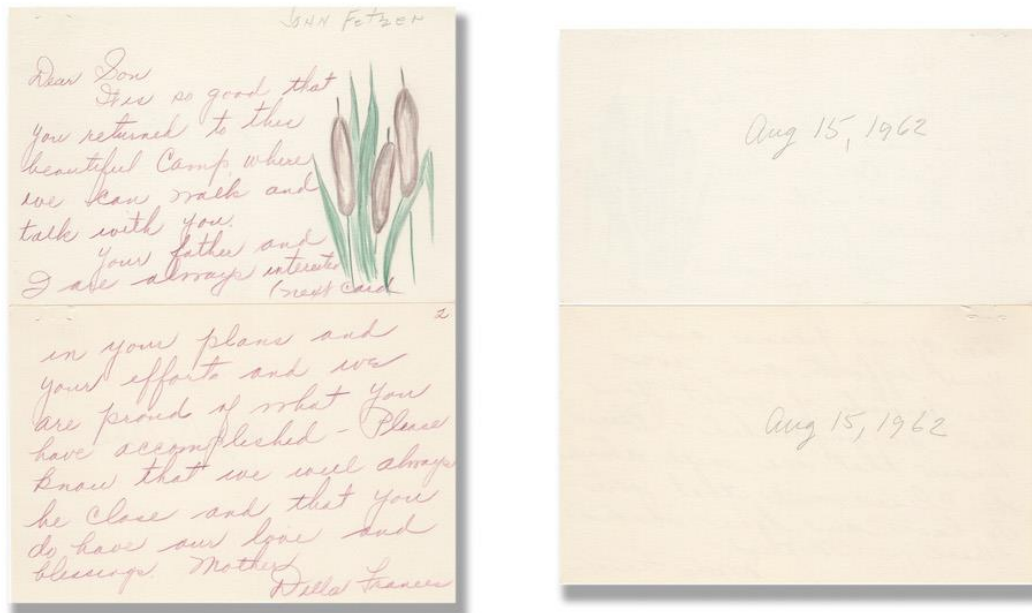 John Fetzer
Dear Son
It is so good that
you returned to this
beautiful Camp, where
we can walk and
talk with you.
Your father and
I are always interested
(next card
2
in your plans and
your efforts and we
are proud of what you
have accomplished - Please
know that we will always
be close and that you
do have our love and
blessings. Mother
Della Frances
Aug 15, 1962
Aug 15, 1962